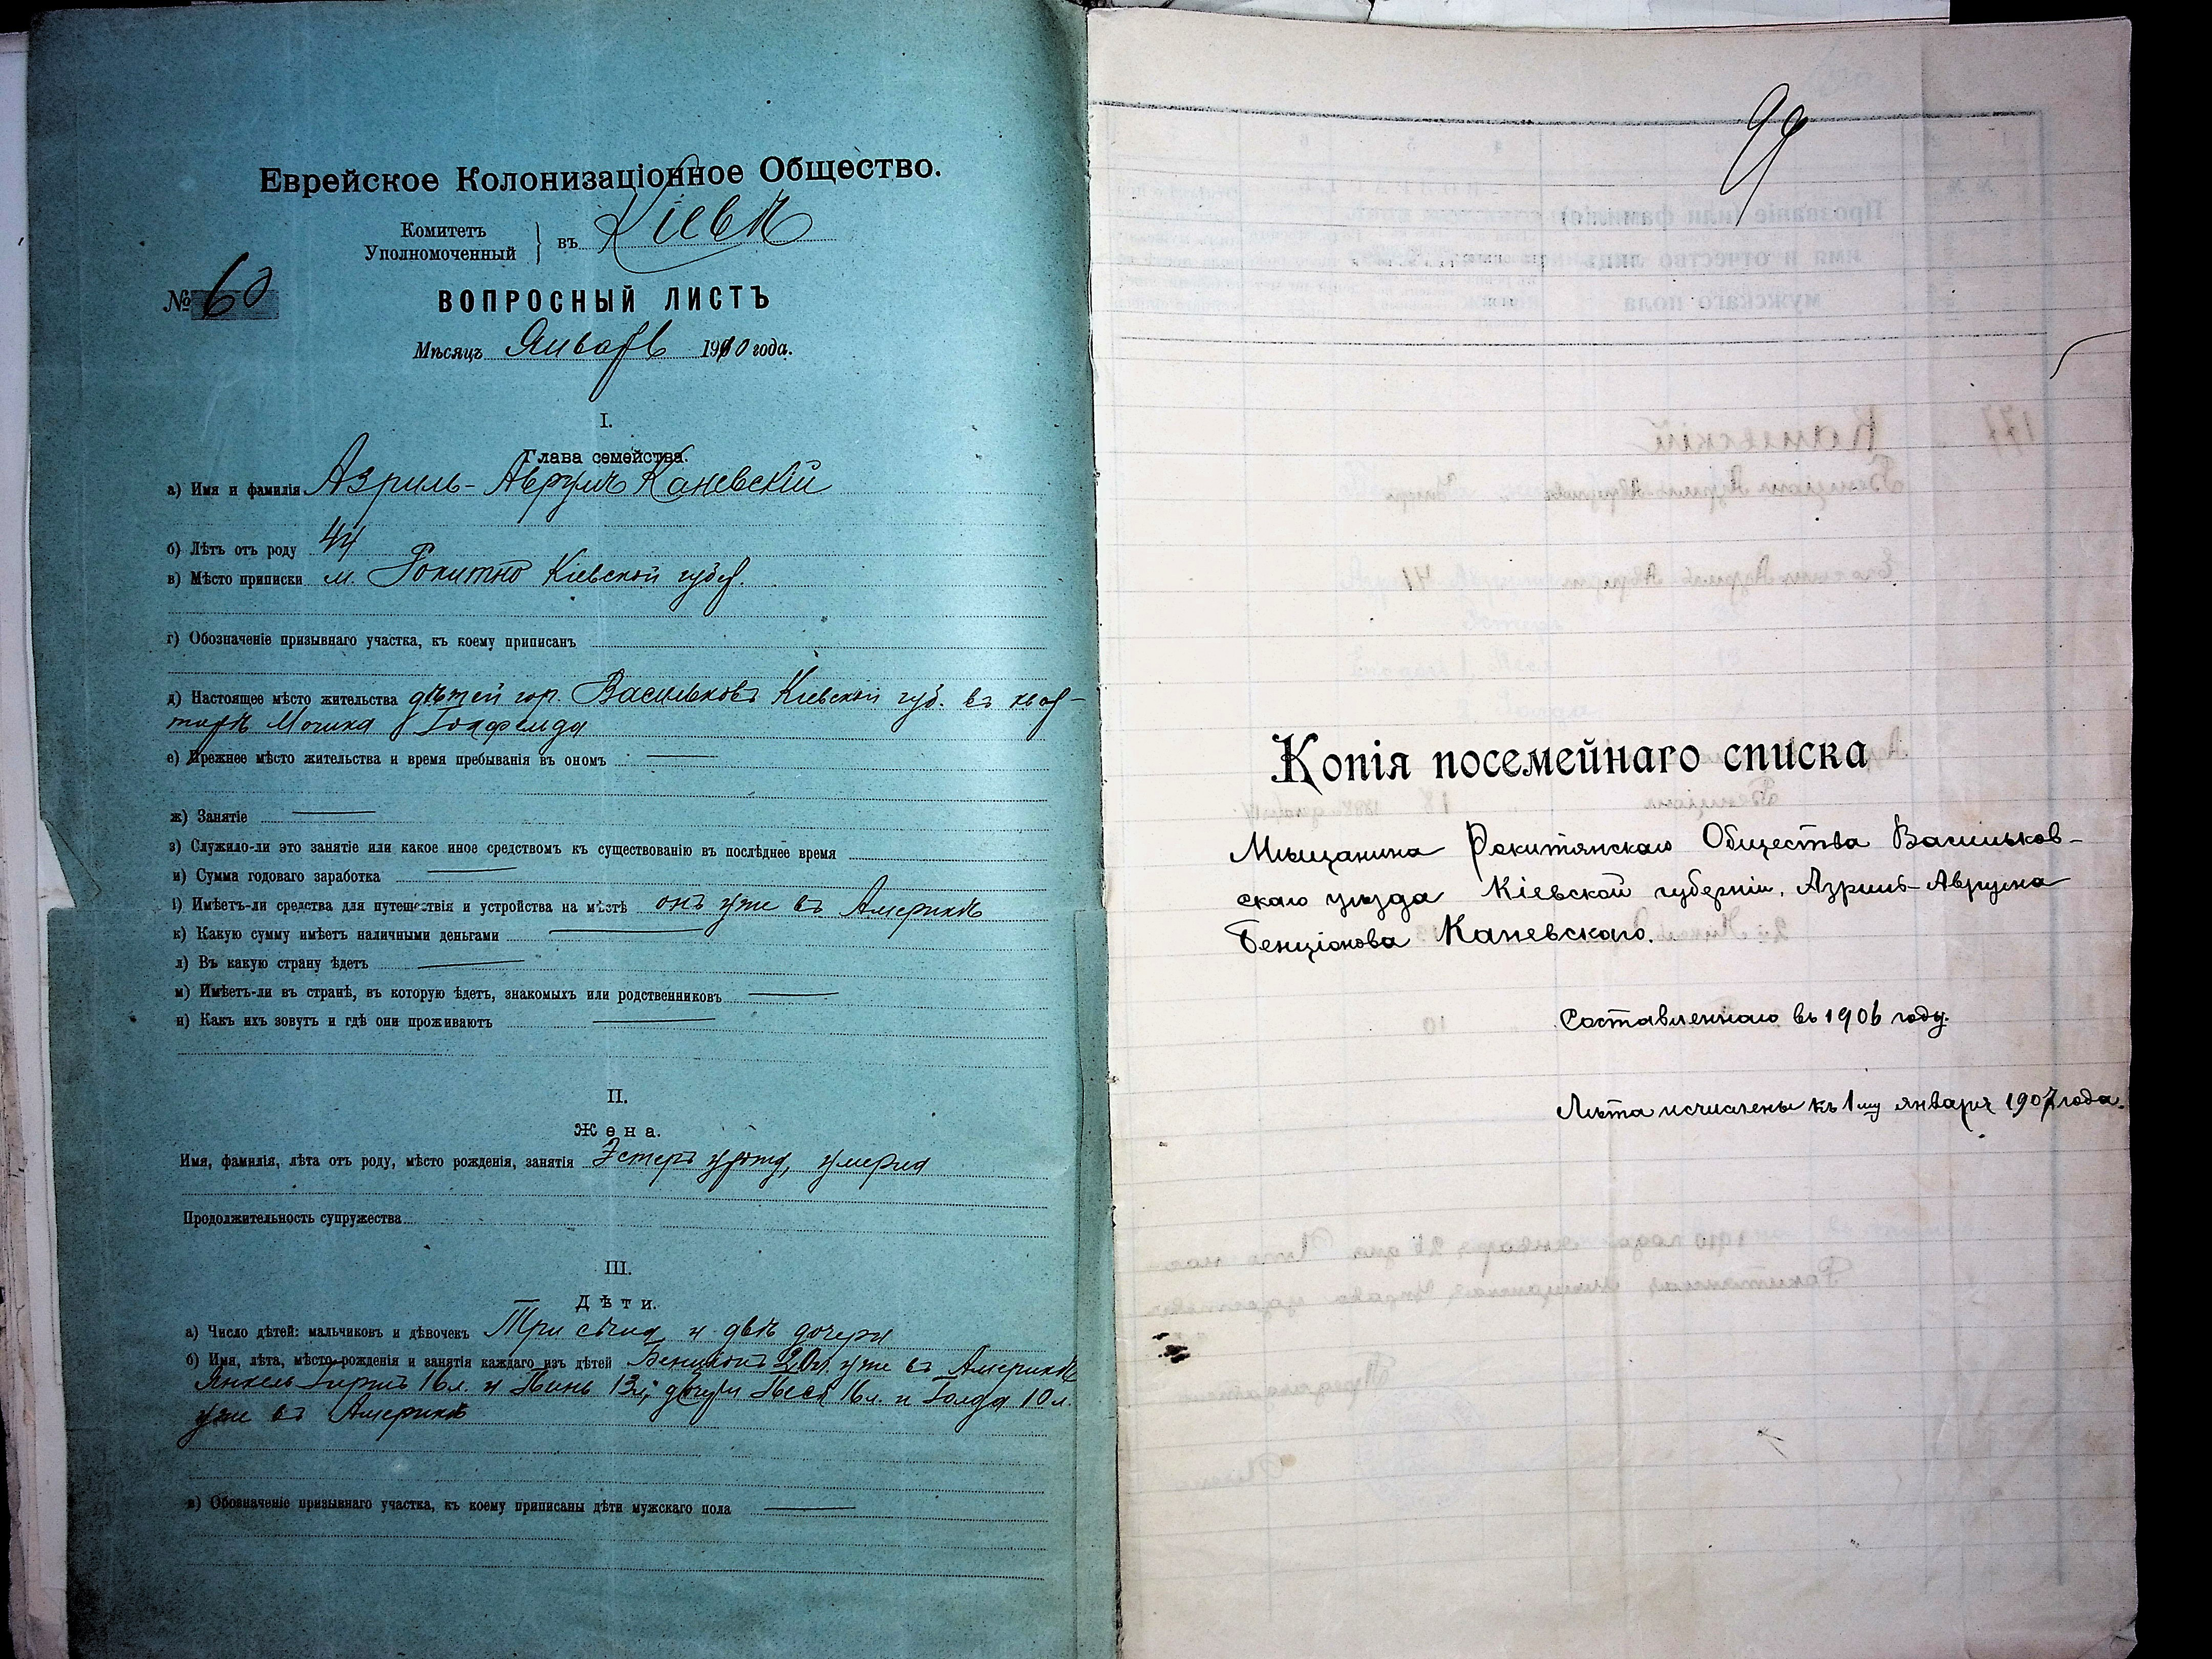 Еврейское Колонизаціонное Общество.
Комитетъ
Уполномоченный } въ Кіевѣ
№ 60
ВОПРОСНЫЙ ЛИСТЪ
Мѣсяцъ Январь 1910 года.
I.
Глава семейства.
а) Имя и фамилія Азриль-Аврумъ Каневскій
б) Лѣтъ отъ роду 44
в) Мѣсто приписки м. Рокитно Кіевской губер.
г) Обозначеніе призывнаго участка, къ коему приписанъ
д) Настоящее мѣсто жительства дѣтей гор. Васильковъ Кіевской губ. въ квар-
тирѣ
е) Прежнее мѣсто жительства и время пребыванія въ ономъ
ж) Занятіе
з) Служило-ли это занятіе или какое иное средствомъ къ существованію въ послѣднее время
и) Сумма годоваго заработка
і) Имѣетъ-ли средства для путешествія и устройства на мѣстѣ онъ уже въ Америкѣ
к) Какую сумму имѣетъ наличными деньгами
л) Въ какую страну ѣдетъ
м) Имѣетъ-ли въ странѣ, въ которую ѣдетъ, знакомыхъ или родственниковъ
н) Какъ ихъ зовутъ и гдѣ они проживаютъ
II.
Жена.
Имя, фамилія, лѣта отъ роду, мѣсто рожденія, занятія Эстеръ умерла
Продолжительность супружества
III.
Дѣти.
а) Число дѣтей: мальчиковъ и дѣвочекъ Три сына и двѣ дочери
б) Имя, лѣта, мѣсто рожденія и занятія каждаго изъ дѣтей Бенціонъ 20л. уже въ Америкѣ
Янкель Гиршъ 16л. и 13л., дочери Песя 16л. и Голда 10л.
уже въ Америкѣ
в) Обозначеніе призывнаго участка, къ коему приписаны дѣти мужскаго пола
99
Копія посемейнаго списка
Мѣщанина Рокитянскаго Общества Васильков-
скаго уѣзда Кіевской губерніи, Азриль-Аврума
Бенціонова Каневскаго.
Составленнаго въ 1906 году.
Лѣта исчислены къ 1му января 1907 года.